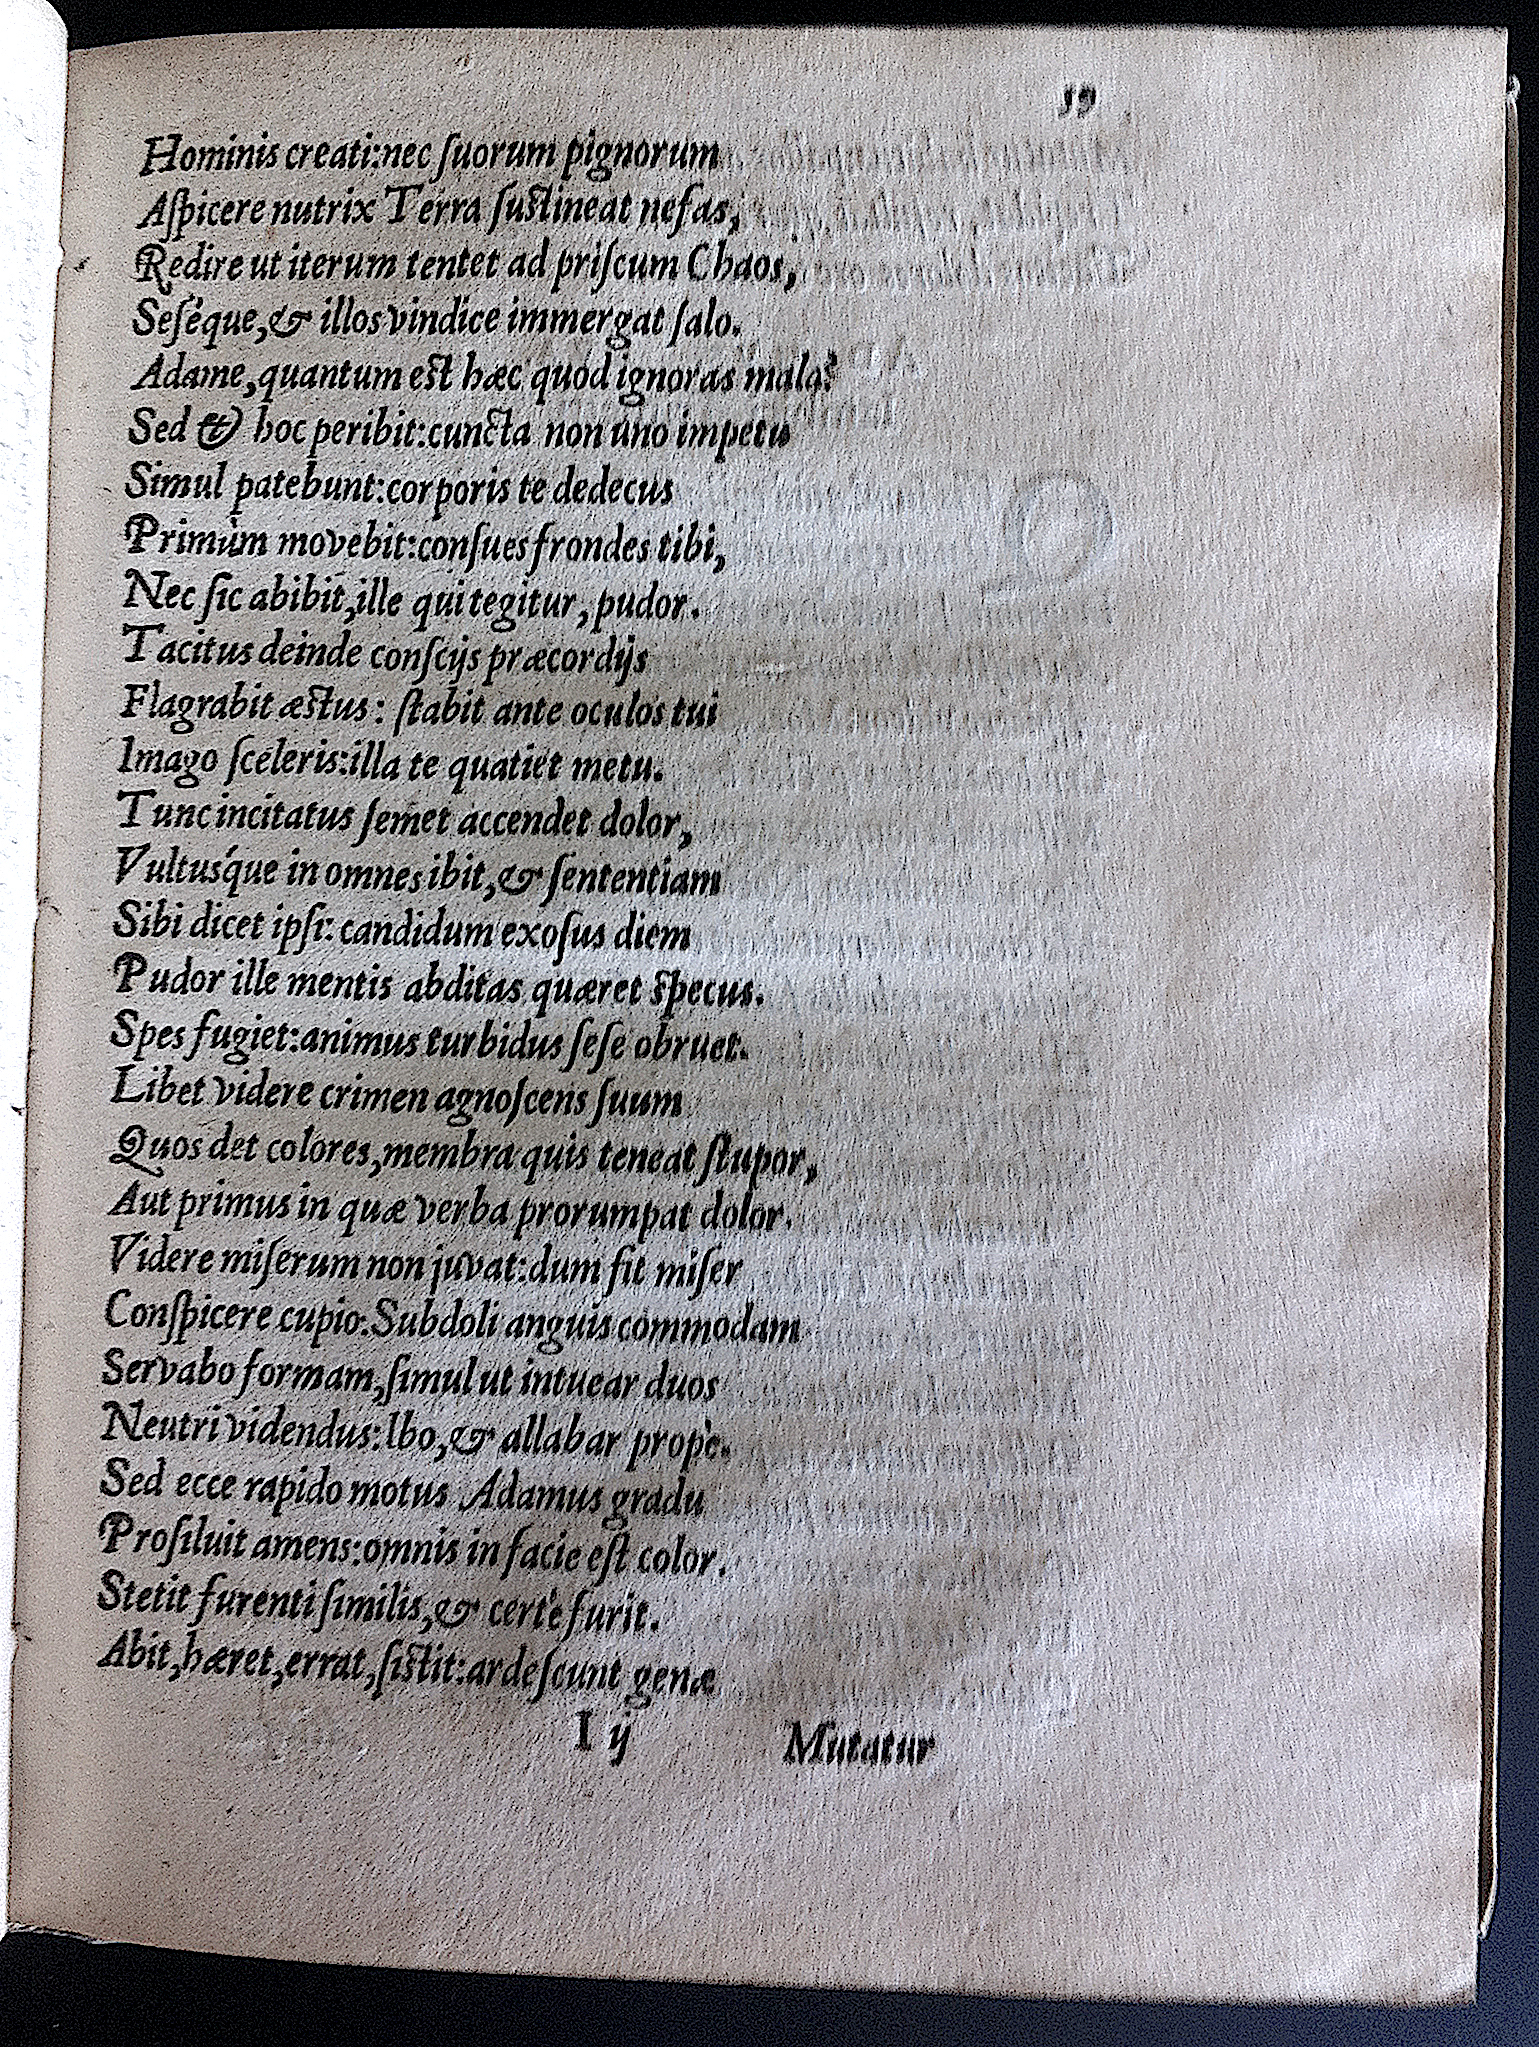 59
Hominis creati:nec ſuorum pignorum
Aſpicere nutrix Terra ſuſtineat nefas,
Redire ut iterum tentet ad priſcum Chaos,
Seséque,& illos vindice immergat ſalo.
Adame,quantum est hæc quod ignoras mala?
Sed & hoc peribit:cuncta non uno impetu
Simul patebunt:corporis te dedecus
Primùm movebit:conſues frondes tibi,
Nec ſic abibit,ille qui tegitur, pudor.
Tacitus deinde conſcijs præcordijs
Flagrabit æstus: ſtabit ante oculos tui
Imago ſceleris:illa te quatiet metu.
Tunc incitatus ſemet accendet dolor,
Vultusque in omnes ibit,& ſententiam
Sibi dicet ipſi: candidum exoſus diem
Pudor ille mentis abditas quæret specus.
Spes fugiet:animus turbidus ſeſe obruet.
Libet videre crimen agnoſcens ſuum
Quos det colores,membra quis teneat ſtupor,
Aut primus in quæ verba prorumpat dolor.
Videre miſerum non juvat:dum fit miſer
Conſpicere cupio.Subdoli anguis commodam
Servabo formam,ſimul ut intuear duos
Neutri videndus:Ibo,& allabar propè.
Sed ecce rapido motus Adamus gradu
Proſiluit amens:omnis in facie eſt color.
Stetit furenti ſimilis,& certè furit.
Abit,hæret,errat,ſistit:ardeſcunt genæ
I ij Mutatur